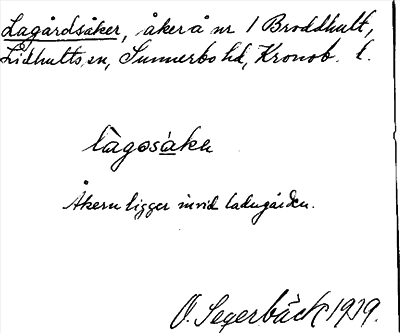 Lagårdsåker, åker å nr 1 Broddhult,
Lidhults sn, Sunnerbo hd, Kronob. l.
lagosåkɐ
Åkern ligger invid ladugården.
O. Segerbäck 1939.